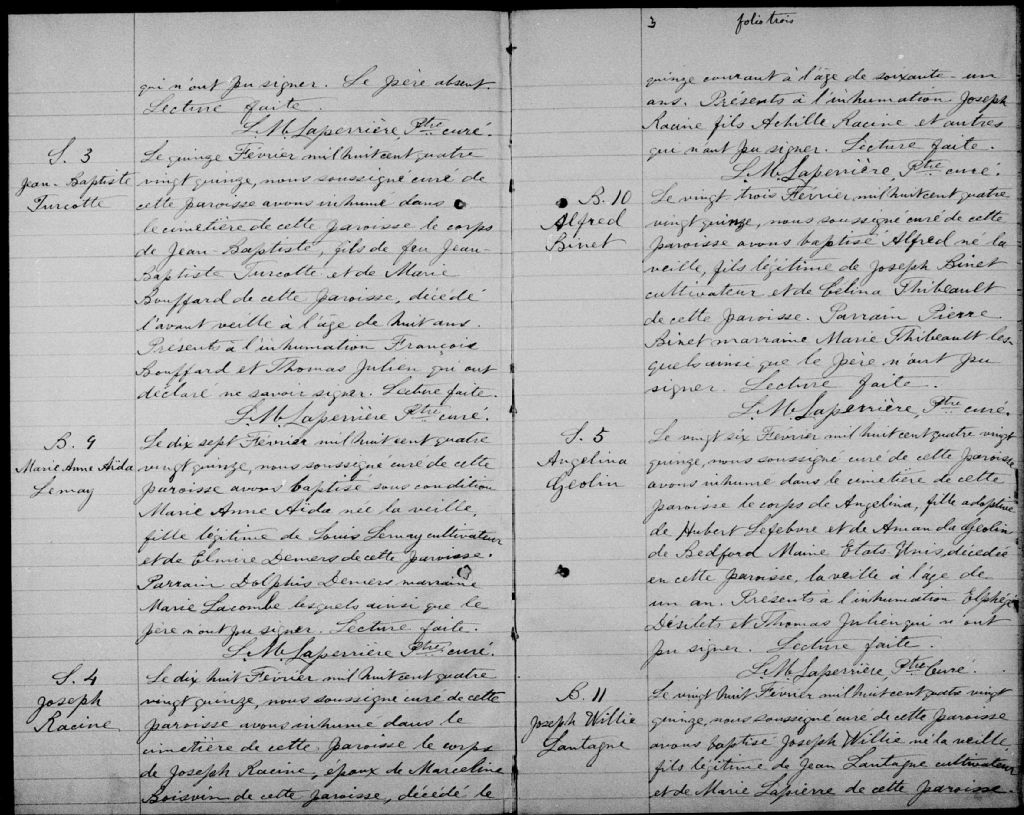 qui n'ont pu signer. Le père absent.
Lecture faite.
L.M. Laperrière, Ptre curé.
S. 3
Jean-Baptiste
Turcotte
Le quinze Février mil huit cent quatre
vingt quinze, nous soussigné curé de
cette paroisse avons inhumé dans
le cimetière de cette paroisse le corps
de Jean-Baptiste, fils de feu Jean-
Baptiste Turcotte et de Marie
Bouffard de cette paroisse, décédé
l'avant veille à l'âge de huit ans.
Présents à l'inhumation François
Bouffard et Thomas Julien qui ont
déclaré ne savoir signer. Lecture faite.
L.M. Laperrière Ptre curé.
B. 9
Marie Anne Aïda
Lemay
Le dix sept Février mil huit cent quatre
vingt quinze, nous soussigné curé de cette
paroisse avons baptisé sous condition
Marie Anne Aïda née la veille,
fille légitime de Louis Lemay cultivateur
et de Elmire Demers de cette paroisse.
Parrain Dolphis Demers marraine
Marie Lacombe lesquels ainsi que le
père n'ont pu signer. Lecture faite.
L.M. Laperrière Ptre curé.
S. 4
Joseph
Racine
Le dix huit Février mil huit cent quatre
vingt quinze, nous soussigné curé de cette
paroisse avons inhumé dans le
cimetière de cette paroisse le corps
de Joseph Racine, époux de Marceline
Boisvin de cette paroisse, décédé le
3 folio trois
quinze courant à l'âge de soixante-un
ans. Présents à l'inhumation Joseph
Racine fils Achille Racine et autres
qui n'ont pu signer. Lecture faite.
L.M. Laperrière, Ptre curé.
B. 10
Alfred
Binet
Le vingt trois Février mil huit cent quatre
vingt quinze, nous soussigné curé de cette
paroisse avons baptisé Alfred né la
veille, fils légitime de Joseph Binet
cultivateur et de Celina Thibeault
de cette paroisse. Parrain Pierre
Binet marraine Marie Thibeault les-
quels ainsi que le père n'ont pu
signer. Lecture faite.
L.M. Laperrière, Ptre curé.
S. 5
Angelina
Geolin
Le vingt six Février mil huit cent quatre vingt
quinze, nous soussigné curé de cette paroisse
avons inhumé dans le cimetière de cette
paroisse le corps de Angelina, fille adoptive
de Hubert Lefebvre et de Amanda Geolin
de Bedford Maine Etats Unis, décédée
en cette paroisse, la veille à l'âge de
un an. Présents à l'inhumation Elphége
Désilets et Thomas Julien qui n'ont
pu signer. Lecture faite.
L.M. Laperrière Ptre Curé.
B. 11
Joseph Willie
Lantagne
Le vingt huit Février mil huit cent quatre vingt
quinze, nous soussigné curé de cette paroisse
avons baptisé Joseph Willie né la veille,
fils légitime de Jean Lantagne cultivateur
et de Marie Lapierre de cette paroisse.